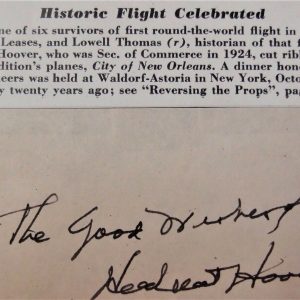 Historic Flight Celebrated
ne of six survivors of first round-the-world flight in
Leases, and Lowell Thomas (r), historian of that f
Hoover, who was Sec. of Commerce in 1924, cut rib
dition's planes, City of New Orleans. A dinner hon
eers was held at Waldorf-Astoria in New York, Octo
y twenty years ago; see "Reversing the Props", pa
The Good Wishes
Hoov